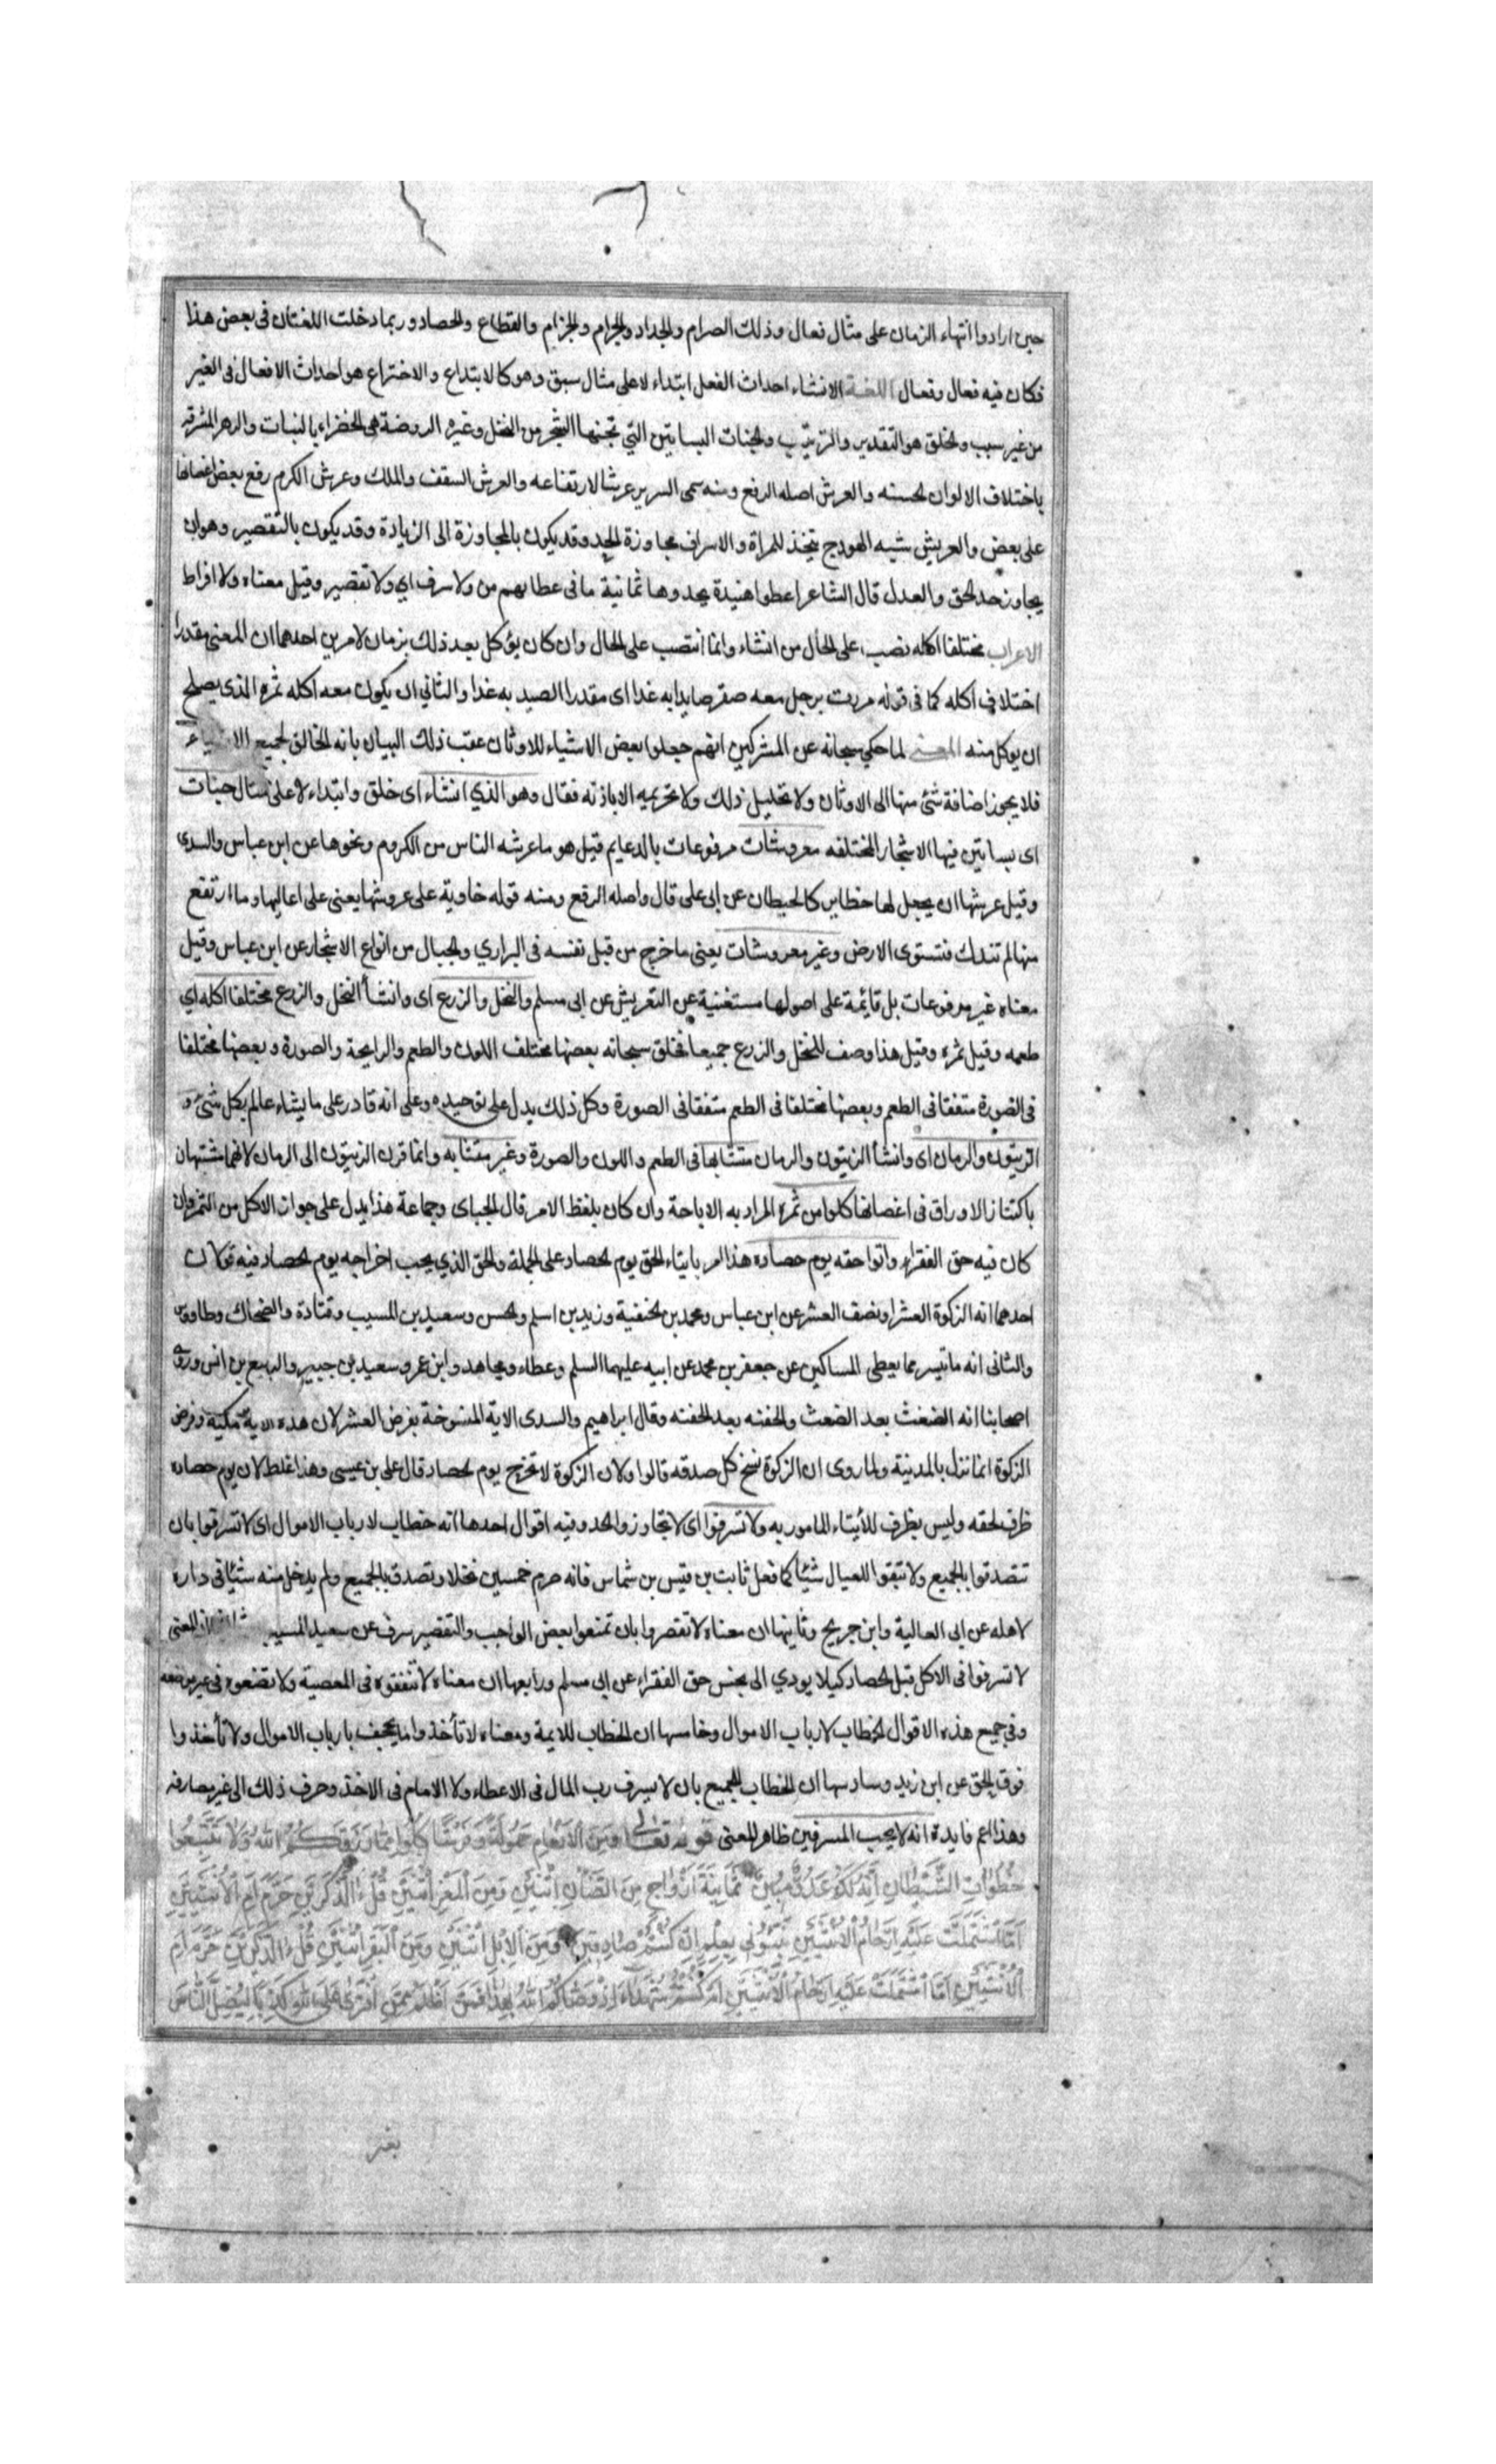 حين ارادوا انتهاء الزمان على مثال فعال وذلك الصرام والجداد والجرام والجزام والقطاع والحصاد وربما دخلت اللغتان فى بعض هذا
فكان فيه فعال وفعال اللغة الانشاء احداث الفعل ابتداء لا على مثال سبق وهو كالابتداع والاختراع هو احداث الافعال فى الغير
من غير سبب والخلق هو التقدير والترتيب والجنات البساتين التي تجنها الشجر من النخل وغيره الروضة هى الخضراء بالنبات والزهر المشرقه
باختلاف الالوان لحسنه والعرش اصله الرفع ومنه سمى السرير عرشا لارتفاعه والعرش السقف والملك وعرش الكرم رفع بعض اغصانها
على بعض والعريش شبه الهودج يتخذ للمراة والاسراف مجاوزة الحد وقد يكون بالمجاوزة الى الزيادة وقد يكون بالتقصير وهو ان
يجاوز حد الحق والعدل قال الشاعر اعطوا هنيدة يحدوها ثمانية ما فى عطائهم من ولا سرف اي ولا تقصير وقيل معناه ولا افراط
الاعراب مختلفا اكله نصب على الحال من انشاء وانما انتصب على الحال وان كان يؤكل بعد ذلك بزمان لامرين احدهما ان المعنى مقدرا
اختلاف اكله كما فى قوله مررت برجل معه صقر صايدا به غدا اى مقدرا الصيد به غدا والثاني ان يكون معه اكله ثمره الذى يصلح
ان يوكل منه المعنى لما حكى سبحانه عن المشركين انهم جعلوا بعض الاشياء للاوثان عقب ذلك البيان بانه الخالق لجميع الاشياء
فلا يجوز اضافة شئ منها الى الاوثان ولا تحليل ذلك ولا تحريمه الا باذنه فقال وهو الذي انشاء اى خلق وابتداء لا على مثال جنات
اى بساتين فيها الاشجار المختلفه معروشات مرفوعات بالدعايم قيل هو ما عرشه الناس من الكروم ونحوها عن ابن عباس والسدى
وقيل عرشها ان يجعل لها حظاير كالحيطان عن ابى على قال واصله الرفع ومنه قوله خاوية على عروشها يعنى على اعاليها وما ارتفع
منها لم تندك فتستوى الارض وغير معروشات يعنى ما خرج من قبل نفسه فى البراري والجبال من انواع الاشجار عن ابن عباس وقيل
معناه غير مرفوعات بل قائمة على اصولها مستغنية عن التعريش عن ابى مسلم والنخل والزرع اى وانشأ النخل والزرع مختلفا اكله اي
طعمه وقيل ثمره وقيل هذا وصف للنخل والزرع جميعا فخلق سبحانه بعضها مختلف اللون والطعم والرايحة والصورة وبعضها مختلفا
فى الصورة متفقا فى الطعم وبعضها مختلفا فى الطعم متفقا فى الصورة وكل ذلك يدل على توحيده وعلى انه قادر على ما يشاء عالم بكل شئ و
الزيتون والرمان اى وانشأ الزيتون والرمان متشابها فى الطعم واللون والصورة وغير متشابه وانما قرن الزيتون الى الرمان لانهما مشتبهان
باكتناز الاوراق فى اغصانها كلوا من ثمره المراد به الاباحة وان كان بلفظ الامر قال الجباى وجماعة هذا يدل على جواز الاكل من الثمر وان
كان فيه حق الفقراء واتوا حقه يوم حصاده هذا امر بايتاء الحق يوم الحصاد على الجملة والحق الذي يجب اخراجه يوم الحصاد فيه قولان
احدهما انه الزكوة العشر او نصف العشر عن ابن عباس ومحمد بن الحنفية وزيد بن اسلم والحسن وسعيد بن المسيب وقتادة والضحاك وطاووس
والثانى انه ما تيسر مما يعطى المساكين عن جعفر بن محمد عن ابيه عليهما السلم وعطاء ومجاهد وابن عمر وسعيد بن جبير والربيع بن انس وروى
اصحابنا انه الضغث بعد الضغث والحفنه بعد الحفنه وقال ابراهيم والسدى الاية المنسوخة بفرض العشر لان هذه الاية مكية وفرض
الزكوة انما نزل بالمدينة ولما روى ان الزكوة نسخ كل صدقه قالوا ولان الزكوة لا تخرج يوم الحصاد قال على بن عيسى وهذا غلط لان يوم حصاده
ظرف لحقه وليس بظرف للأيتاء المامور به ولا تسرفوا اى لا تجاوزوا الحد وفيه اقوال احدها انه خطاب لارباب الاموال اى لا تسرفوا بان
تتصدقوا بالجميع ولا تبقوا للعيال شيئا كما فعل ثابت بن قيس بن شماس فانه صرم خمسين نخلا وتصدق بالجميع ولم يدخل منه شيئا فى داره
لاهله عن ابى العالية وابن جريج وثانيها ان معناه لا تقصروا بان تمنعوا بعض الواجب والتقصير سرف عن سعيد المسيب المعنى
لا تسرفوا فى الاكل قبل الحصاد كيلا يودي الى بخس حق الفقراء عن ابى مسلم ورابعها ان معناه لا تنفقوه فى المعصية ولا تضعوه فى غير موضعه
وفي جميع هذه الاقوال الخطاب لارباب الاموال وخامسها ان الخطاب للايمة ومعناه لا تأخذوا ما يجحف بارباب الاموال ولا تأخذوا
فوق الحق عن ابن زيد وسادسها ان الخطاب للجميع بان لا يسرف رب المال فى الاعطاء ولا الامام فى الاخذ وصرف ذلك الى غير مصارفه
وهذا اعم فايدة انه لا يحب المسرفين ظاهر المعنى قوله تعالى وَمِنَ الْاَنْعَامِ حَمُولَةً وَفَرْشًا كُلُوا مِمَّا رَزَقَكُمُ اللهُ وَلَا تَتَّبِعُوا
خُطُوَاتِ الشَّيْطَانِ اِنَّهُ لَكُمْ عَدُوٌّ مُبِينٌ ثَمَانِيَةَ اَزْوَاجٍ مِنَ الضَّأْنِ اثْنَيْنِ وَمِنَ الْمَعْزِ اثْنَيْنِ قُلْ ءَالذَّكَرَيْنِ حَرَّمَ اَمِ الْاُنْثَيَيْنِ
اَمَّا اشْتَمَلَتْ عَلَيْهِ اَرْحَامُ الْاُنْثَيَيْنِ نَبِّئُونِي بِعِلْمٍ اِنْ كُنْتُمْ صَادِقِينَ وَمِنَ الْاِبِلِ اثْنَيْنِ وَمِنَ الْبَقَرِ اثْنَيْنِ قُلْ ءَالذَّكَرَيْنِ حَرَّمَ اَمِ
الْاُنْثَيَيْنِ اَمَّا اشْتَمَلَتْ عَلَيْهِ اَرْحَامُ الْاُنْثَيَيْنِ اَمْ كُنْتُمْ شُهَدَاءَ اِذْ وَصَّاكُمُ اللهُ بِهَذَا فَمَنْ اَظْلَمُ مِمَّنِ افْتَرَى عَلَى اللهِ كَذِبًا لِيُضِلَّ النَّاسَ
بغير